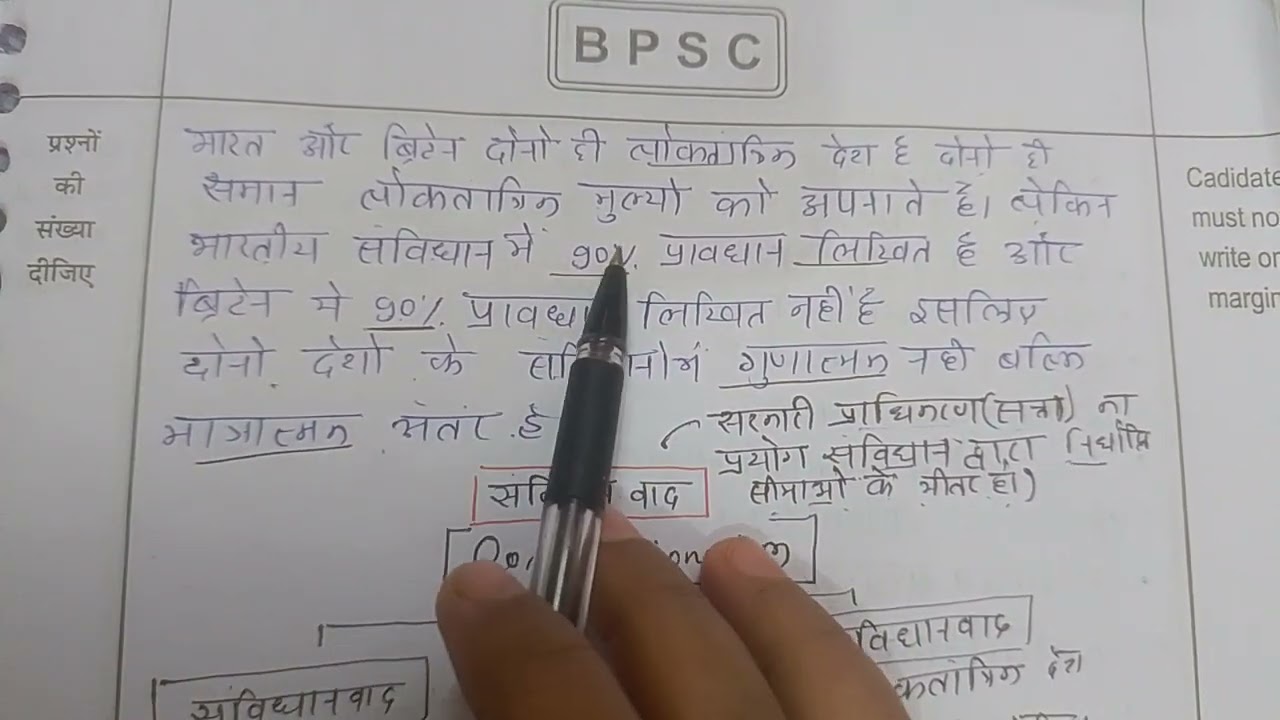 BPSC
प्रश्नों
की
संख्या
दीजिए
Cadidate
must no
write or
margin
भारत और ब्रिटेन दोनो ही लोकतांत्रिक देश है दोनो ही
समान लोकतांत्रिक मुल्यो को अपनाते है। लेकिन
भारतीय संविधान में 90% प्रावधान लिखित है और
ब्रिटेन मे 90% प्रावधा लिखित नहीं है इसलिए
दोनो देशो के गुणात्मक नही बल्कि
मात्रात्मक अंतर है
सरकारी प्राधिकरण(सत्ता) का
प्रयोग संविधान द्वारा निर्धारित
सीमाओं के भीतर हो)
वाद
संविधानवाद
विधानवाद
कतांत्रिक देश